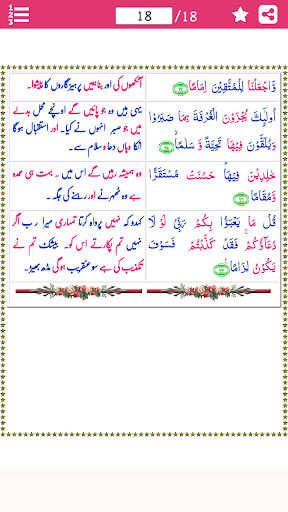 18 /18
وَّاجْعَلْنَا لِلْمُتَّقِيْنَ اِمَامًا ﴿۷۴﴾
آنکھوں کی اور بنا ہمیں پرہیزگاروں کا پیشوا۔
اُولٰٓئِكَ يُجْزَوْنَ الْغُرْفَةَ بِمَا صَبَرُوْا
وَيُلَقَّوْنَ فِيْهَا تَحِيَّةً وَّ سَلٰمًا ﴿۷۵﴾
یہی ہیں وہ جو پائیں گے اونچے محل بدلے
میں جو صبر انہوں نے کیا۔ اور استقبال ہوگا
انکا وہاں دعا و سلام سے۔
خٰلِدِيْنَ فِيْهَا ؕ حَسُنَتْ مُسْتَقَرًّا
وَّمُقَامًا ﴿۷۶﴾
وہ ہمیشہ رہیں گے اس میں۔ بہت ہی عمدہ
ہے وہ ٹھہرنے اور رہنے کی جگہ۔
قُلْ مَا يَعْبَؤُا بِكُمْ رَبِّىْ لَوْ لَا
دُعَآؤُكُمْ ۚ فَقَدْ كَذَّبْتُمْ فَسَوْفَ
يَكُوْنُ لِزَامًا ﴿۷۷﴾
کہدو کہ نہیں پرواہ کرتا تمہاری میرا رب اگر
نہیں تم پکارتے اس کو۔ بیشک تم نے
تکذیب کی ہے سو عنقریب ہوگی مڈھ بھیڑ۔